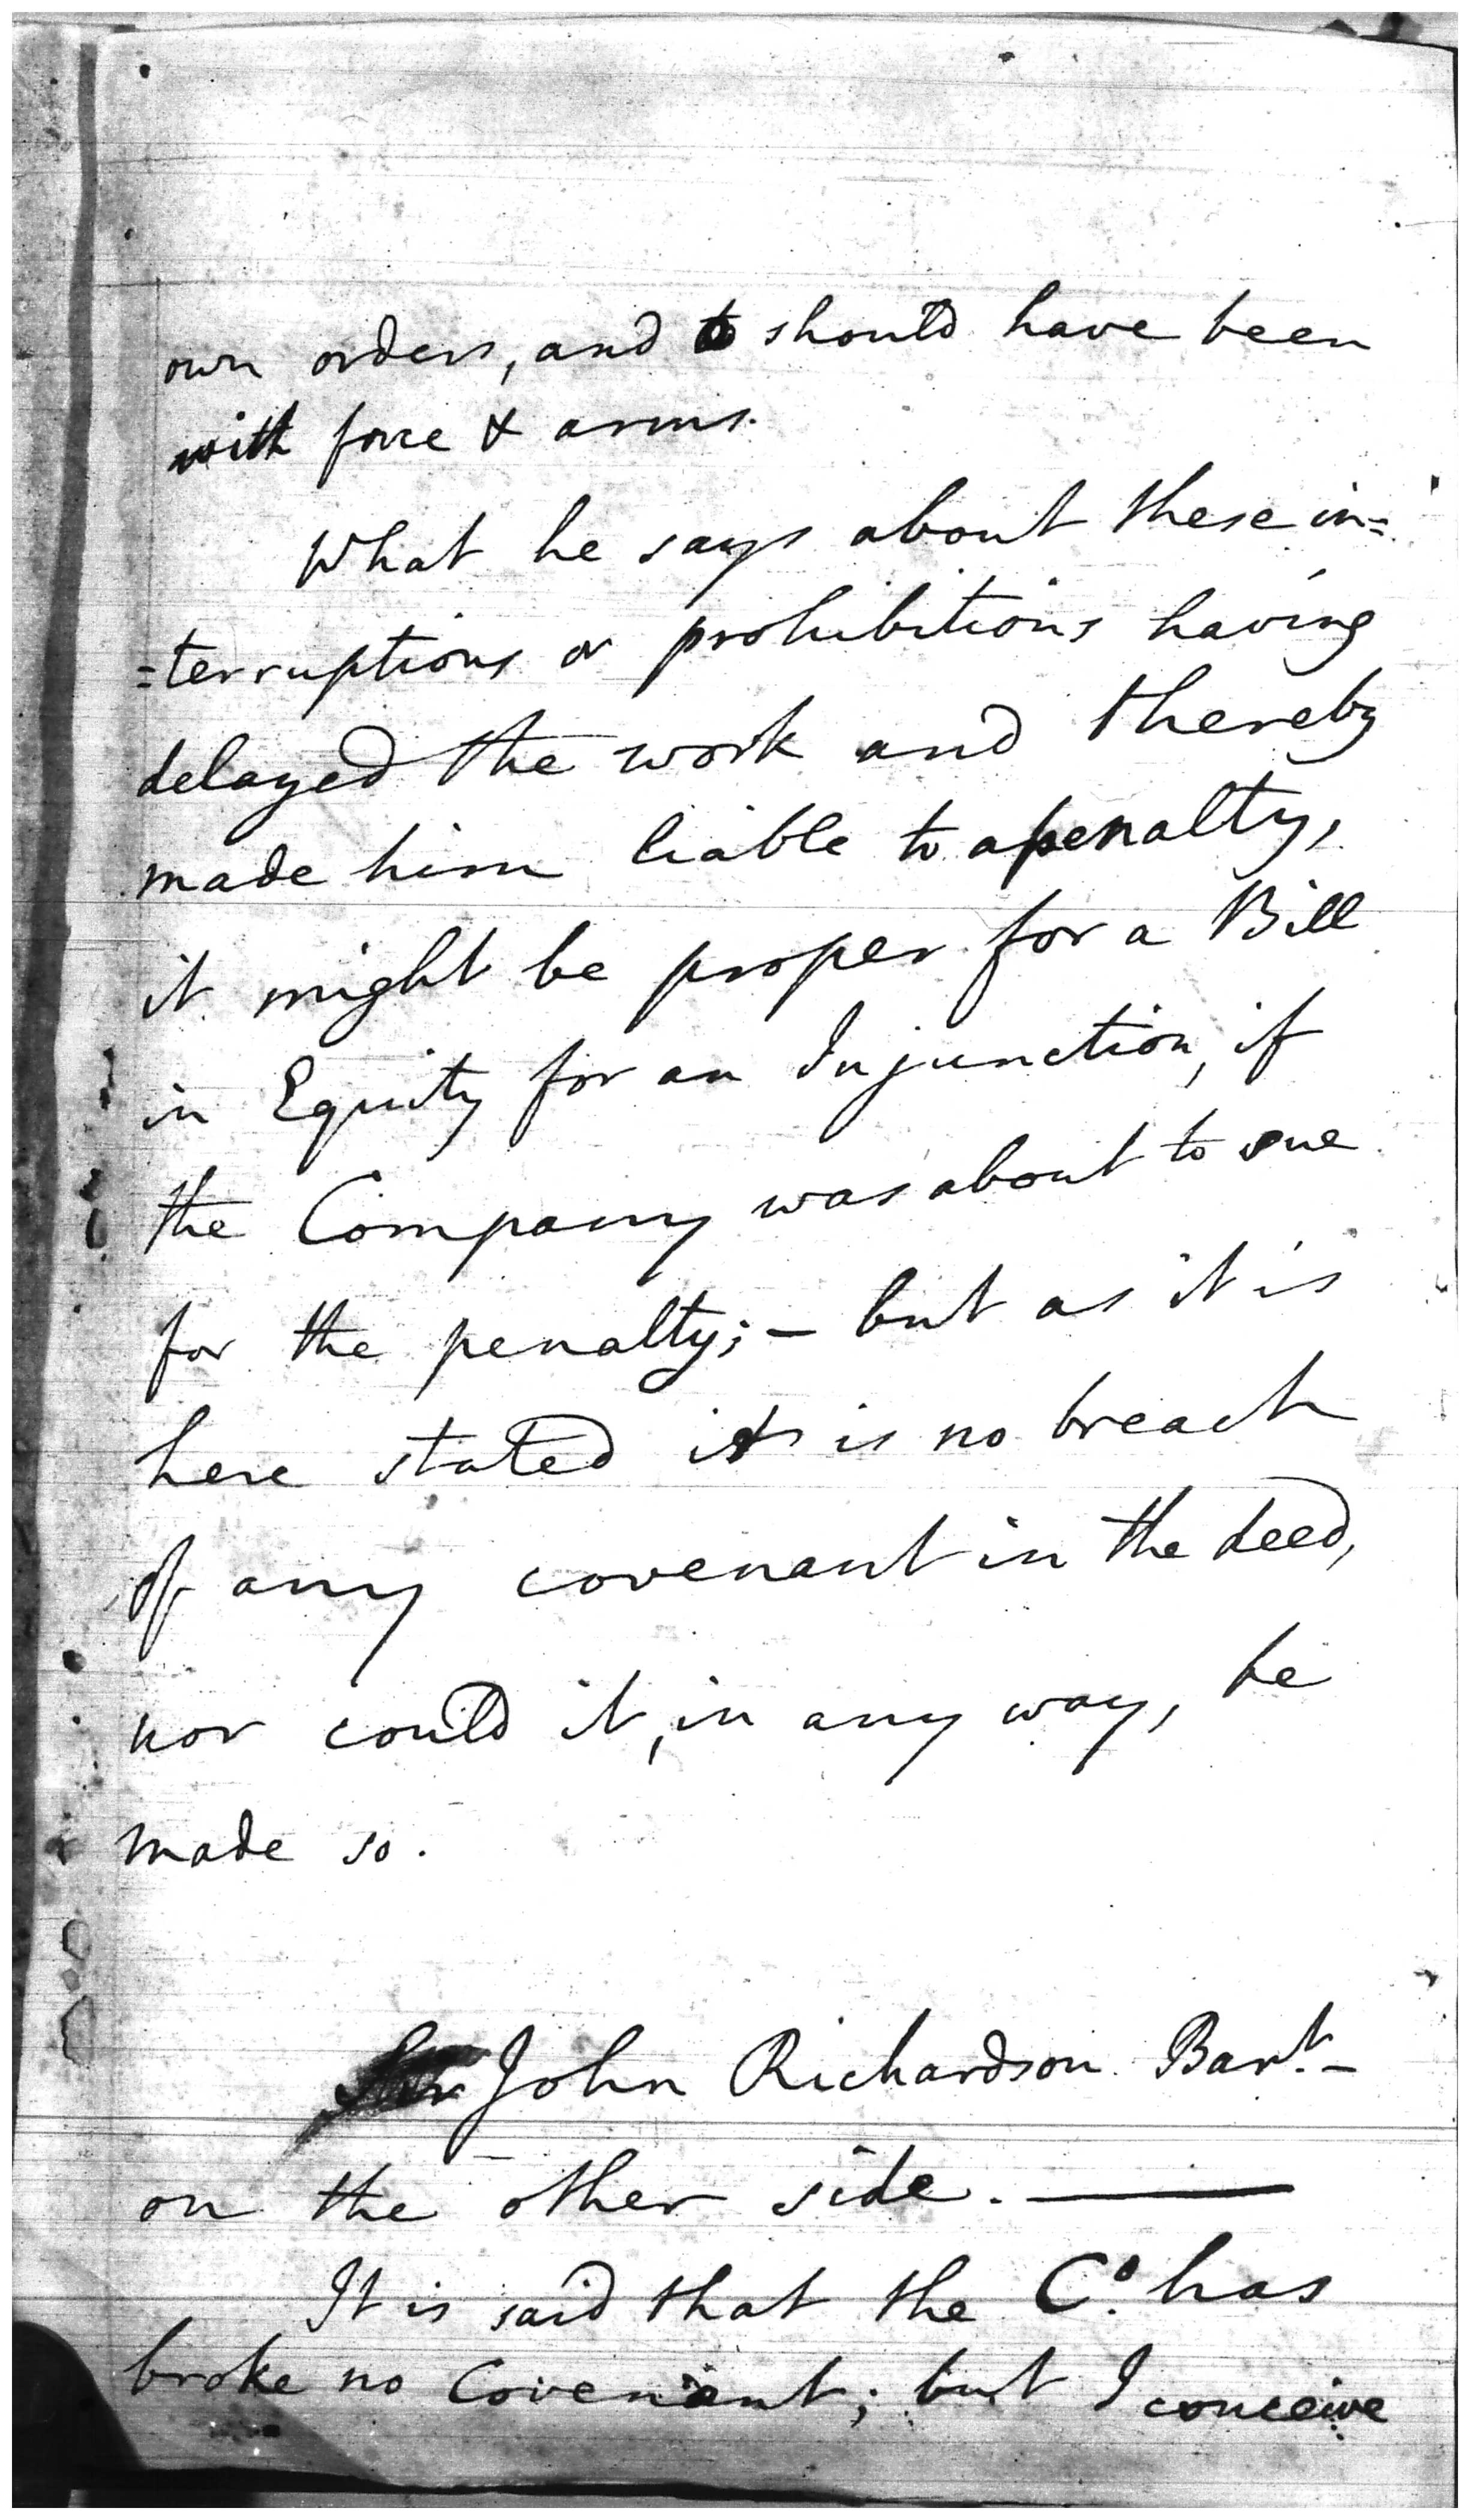 own orders, and should have been
with force & arms.
What he says about these in=
=terruptions or prohibitions having
delayed the work and thereby
made him liable to a penalty,
it might be proper for a Bill
in Equity for an Injunction, if
the Company was about to sue
for the penalty; – but as it is
here stated it is no breach
of any covenant in the deed,
nor could it, in any way, be
made so.
John Richardson Bart. –
on the other side. —
It is said that the Co. has
broke no Covenant; but I conceive